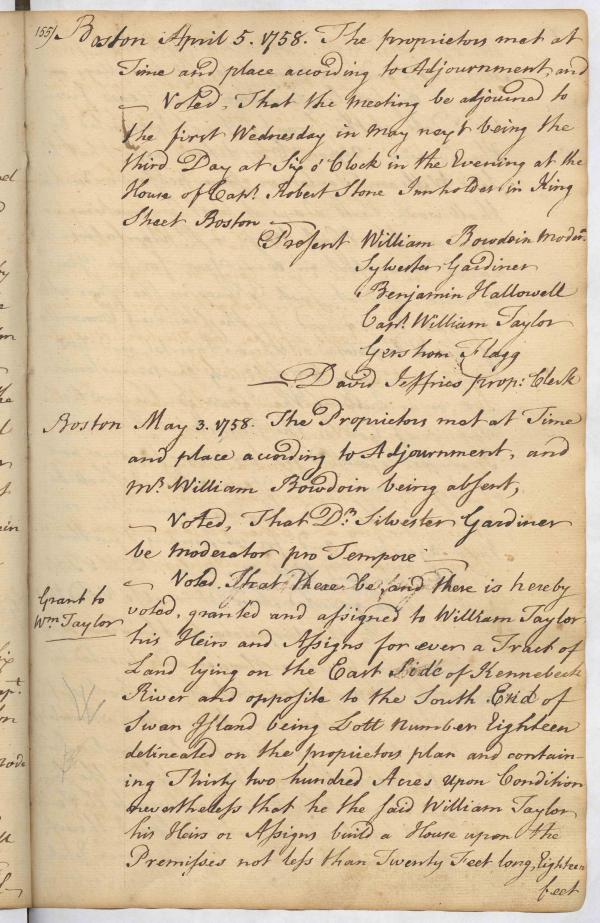 155) Boston April 5. 1758. The proprietors met at
Time and place according to Adjournment, and
— Voted, That the meeting be adjourned to
the first Wednesday in may next being the
third Day at Six o'Clock in the Evening at the
House of Capt. Robert Stone Innholder in King
Street Boston —
Present William Bowdoin modr.
Sylvester Gardiner
Benjamin Hallowell
Capt. William Taylor
Gershom Flagg
— David Jeffries prop: Clerk
Boston May 3. 1758. The Proprietors met at Time
and place according to Adjournment, and
mr. William Bowdoin being absent,
— Voted, That Dr. Silvester Gardiner
be moderator pro Tempore —
— Voted. That there be, and there is hereby
Grant to
Wm Taylor
voted, granted and assigned to William Taylor
his Heirs and Assigns for ever a Tract of
Land lying on the East Side of Kennebeck
River and opposite to the South End of
Swan Island being Lott number Eighteen
delineated on the proprietors plan and contain-
ing Thirty two hundred Acres upon Condition
nevertheless that he the said William Taylor
his Heirs or Assigns build a House upon the
Premisses not less than Twenty Feet long, Eighteen
feet